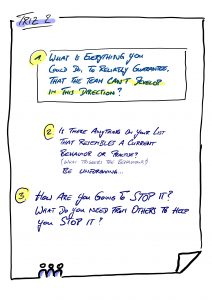 TRIZ 2
1. WHAT IS EVERYTHING YOU
COULD DO, TO RELIABLY GUARANTEE,
THAT THE TEAM CAN'T DEVELOP
IN THIS DIRECTION?
2. IS THERE ANYTHING ON YOUR LIST
THAT RESEMBLES A CURRENT
BEHAVIOR OR PRACTICE?
(WHAT TRIGGERS THE BEHAVIOUR?)
BE UNFORGIVING...
3. HOW ARE YOU GOING TO STOP IT?
WHAT DO YOU NEED FROM OTHERS TO HELP
YOU STOP IT?